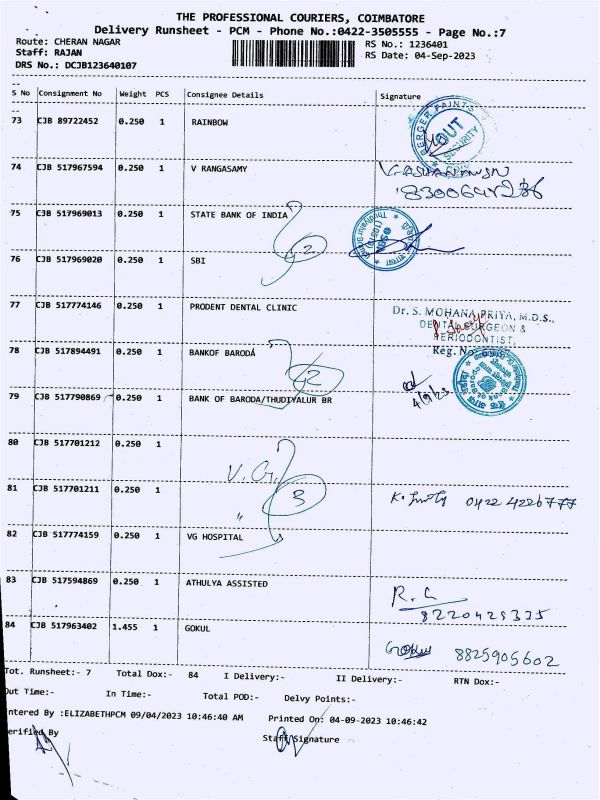 THE PROFESSIONAL COURIERS, COIMBATORE
Delivery Runsheet - PCM - Phone No.:0422-3505555 - Page No.:7
Route: CHERAN NAGAR RS No.: 1236401
Staff: RAJAN RS Date: 04-Sep-2023
DRS No.: DCJB123640107
S No Consignment No Weight PCS Consignee Details Signature
73 CJB 89722452 0.250 1 RAINBOW
BERGER PAINTS
OUT
SECURITY
74 CJB 517967594 0.250 1 V RANGASAMY
75 CJB 517969013 0.250 1 STATE BANK OF INDIA
2
76 CJB 517969020 0.250 1 SBI
77 CJB 517774146 0.250 1 PRODENT DENTAL CLINIC
Dr. S. MOHANA PRIYA, M.D.S.,
DENTAL SURGEON &
PERIODONTIST,
Reg. No
78 CJB 517894491 0.250 1 BANKOF BARODA
2
4/9/23
79 CJB 517790869 0.250 1 BANK OF BARODA/THUDIYALUR BR
80 CJB 517701212 0.250 1
V. G.
3
81 CJB 517701211 0.250 1 " 0422 4226777
82 CJB 517774159 0.250 1 VG HOSPITAL
83 CJB 517594869 0.250 1 ATHULYA ASSISTED
R. C
8220425335
84 CJB 517963402 1.455 1 GOKUL Gokul 8825905602
Tot. Runsheet:- 7 Total Dox:- 84 I Delivery:- II Delivery:- RTN Dox:-
Out Time:- In Time:- Total POD:- Delvy Points:-
ntered By :ELIZABETHPCM 09/04/2023 10:46:40 AM Printed On: 04-09-2023 10:46:42
erified By Staff Signature